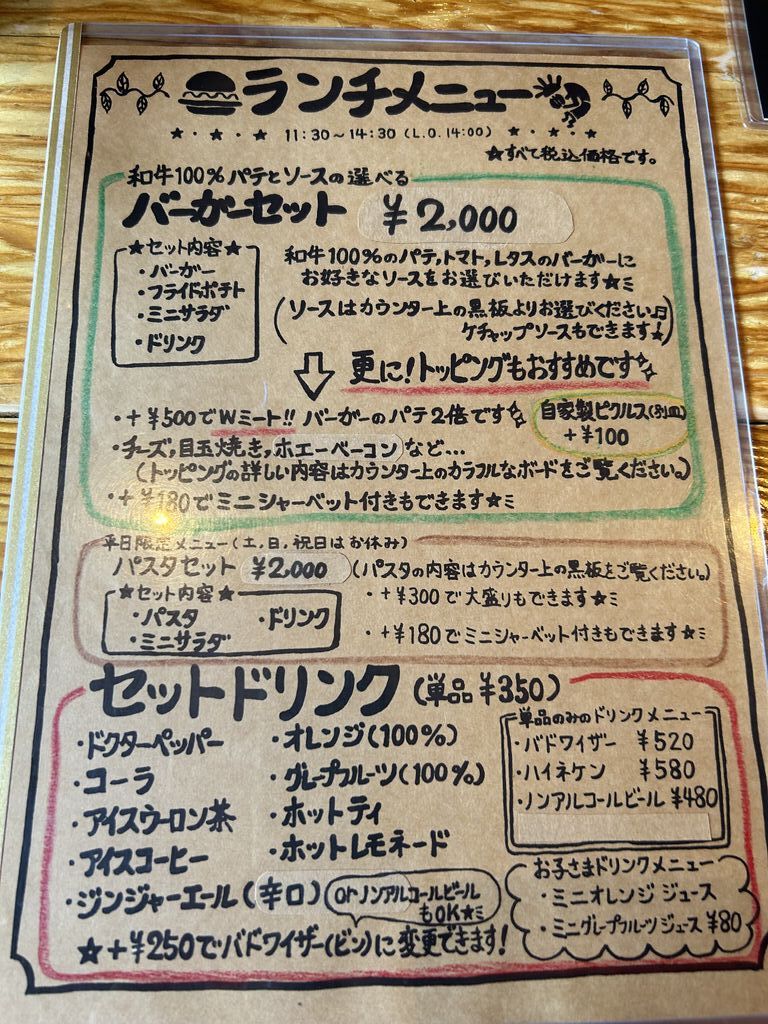 ランチメニュー
★・★・★ 11:30～14:30 (L.O. 14:00) ★・★・★
★すべて税込価格です。
和牛100%パテとソースの選べる
バーガーセット ¥2,000
★セット内容★
・バーガー
・フライドポテト
・ミニサラダ
・ドリンク
和牛100%のパテ,トマト,レタスのバーガーに
お好きなソースをお選びいただけます★ミ
(ソースはカウンター上の黒板よりお選びください♬
ケチャップソースもできます!)
更に!トッピングもおすすめです
・+¥500でWミート!! バーガーのパテ2倍です
自家製ピクルス(別皿)
+¥100
・チーズ,目玉焼き,ホエーベーコンなど…
(トッピングの詳しい内容はカウンター上のカラフルなボードをご覧ください。)
・+¥180でミニシャーベット付きもできます★ミ
平日限定メニュー(土,日,祝日はお休み)
パスタセット ¥2,000 (パスタの内容はカウンター上の黒板をご覧ください。)
★セット内容★
・パスタ ・ドリンク
・ミニサラダ
・+¥300で大盛りもできます★ミ
・+¥180でミニシャーベット付きもできます★ミ
セットドリンク(単品¥350)
・ドクターペッパー
・コーラ
・アイスウーロン茶
・アイスコーヒー
・ジンジャーエール(辛口)
・オレンジ(100%)
・グレープフルーツ(100%)
・ホットティ
・ホットレモネード
orノンアルコールビール
もOK★ミ
★+¥250でバドワイザー(ビン)に変更できます!
単品のみのドリンクメニュー
・バドワイザー ¥520
・ハイネケン ¥580
・ノンアルコールビール ¥480
お子さまドリンクメニュー
・ミニオレンジジュース
・ミニグレープフルーツジュース ¥80